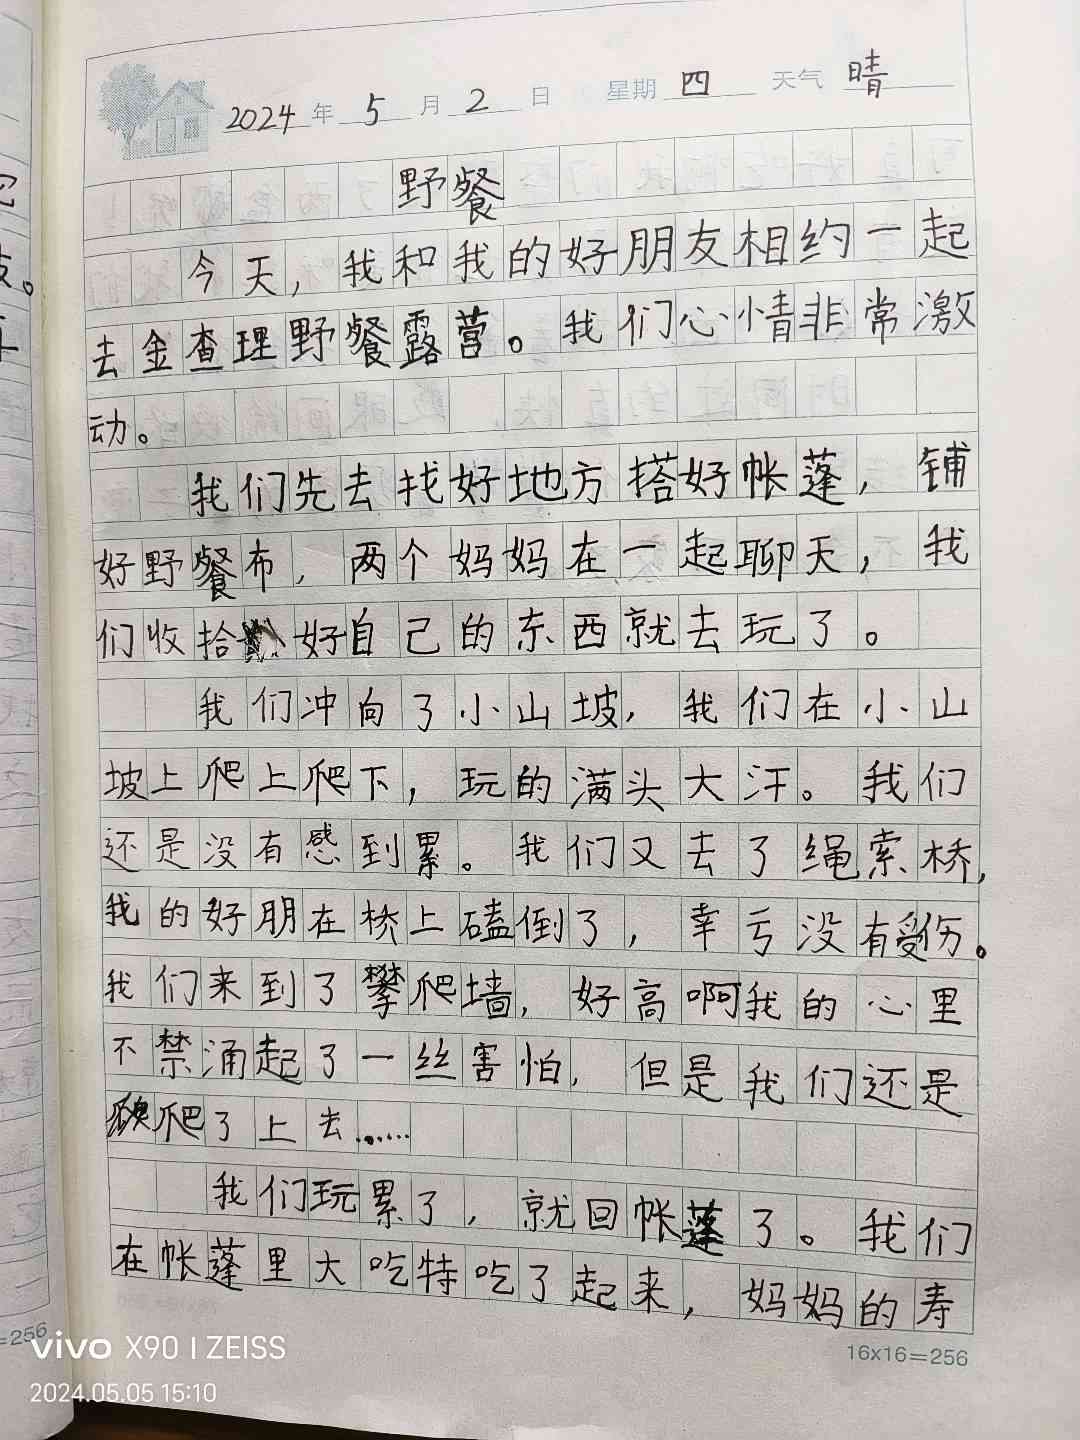 2024年5月2日 星期四 天气晴
野餐
今天，我和我的好朋友相约一起
去金查理野餐露营。我们心情非常激
动。
我们先去找好地方搭好帐蓬，铺
好野餐布，两个妈妈在一起聊天，我
们收拾好自己的东西就去玩了。
我们冲向了小山坡，我们在小山
坡上爬上爬下，玩的满头大汗。我们
还是没有感到累。我们又去了绳索桥，
我的好朋在桥上磕倒了，幸亏没有受伤。
我们来到了攀爬墙，好高啊我的心里
不禁涌起了一丝害怕，但是我们还是
爬了上去……
我们玩累了，就回帐蓬了。我们
在帐蓬里大吃特吃了起来，妈妈的寿
16x16=256
=256
vivo X90 | ZEISS
2024.05.05 15:10